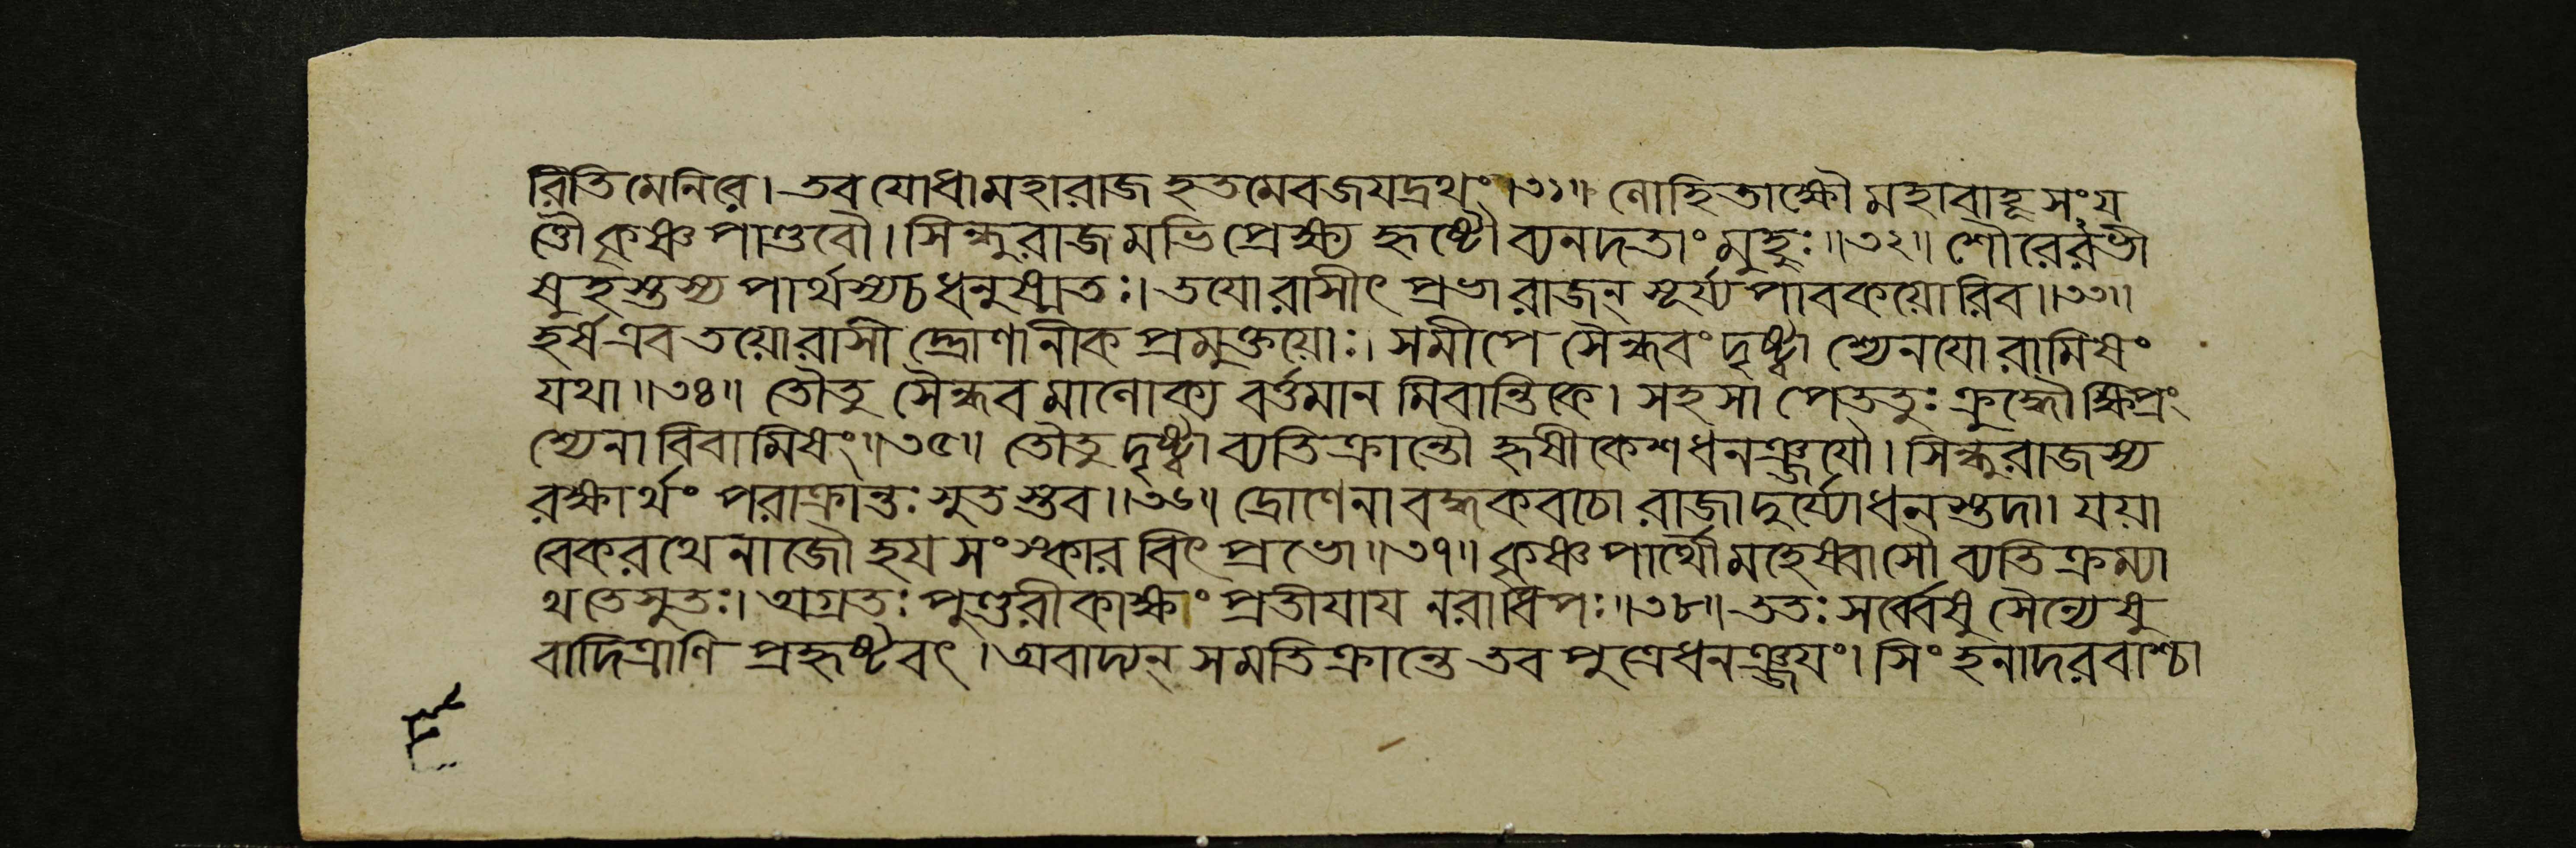 রিতিমেনিরে। তব যোধামহারাজ হতমেবজয়দ্রথং।৩১॥ লোহিতাক্ষৌ মহাবাহূ সংয
ত্তৌকৃষ্ণপাণ্ডবৌ। সিন্ধুরাজমভিপ্রেক্ষ্য হৃষ্টৌ ব্যনদতাং মুহুঃ॥৩২॥ শৌরেরভী
ষুহস্তস্য পার্থস্যচ ধনুষ্মতঃ। তয়োরাসীৎ প্রভারাজন্ সূর্য্যপাবকয়োরিব॥৩৩॥
হর্ষএব তয়োরাসীদ্দ্রোণানীক প্রমুক্তয়োঃ। সমীপে সৈন্ধবং দৃষ্ট্বা শ্যেনয়োরামিষং
যথা॥৩৪॥ তৌতু সৈন্ধবমালোক্য বর্ত্তমানমিবান্তিকে। সহসা পেততুঃ ক্রুদ্ধৌ ক্ষিপ্রং
শ্যেনাবিবামিষং॥৩৫॥ তৌতু দৃষ্ট্বা ব্যতিক্রান্তৌ হৃষীকেশধনঞ্জয়ৌ। সিন্ধুরাজস্য
রক্ষার্থং পরাক্রান্তঃ সুতস্তব॥৩৬॥ দ্রোণেনাবদ্ধকবচো রাজাদুর্য্যোধনস্তদা। যয়া
বেকরথেনাজৌ হয়সংস্কারবিৎ প্রভো॥৩৭॥ কৃষ্ণপার্থৌ মহেষ্বাসৌ ব্যতিক্রম্যা
থতেসুতঃ। অগ্রতঃ পুণ্ডরীকাক্ষং প্রতীয়ায় নরাধিপঃ॥৩৮॥ ততঃ সর্ব্বেষু সৈন্যেষু
বাদিত্রাণি প্রহৃষ্টবৎ। অবাদ্যন্ সমতিক্রান্তে তব পুত্রেধনঞ্জয়ং। সিংহনাদরবাশ্চা